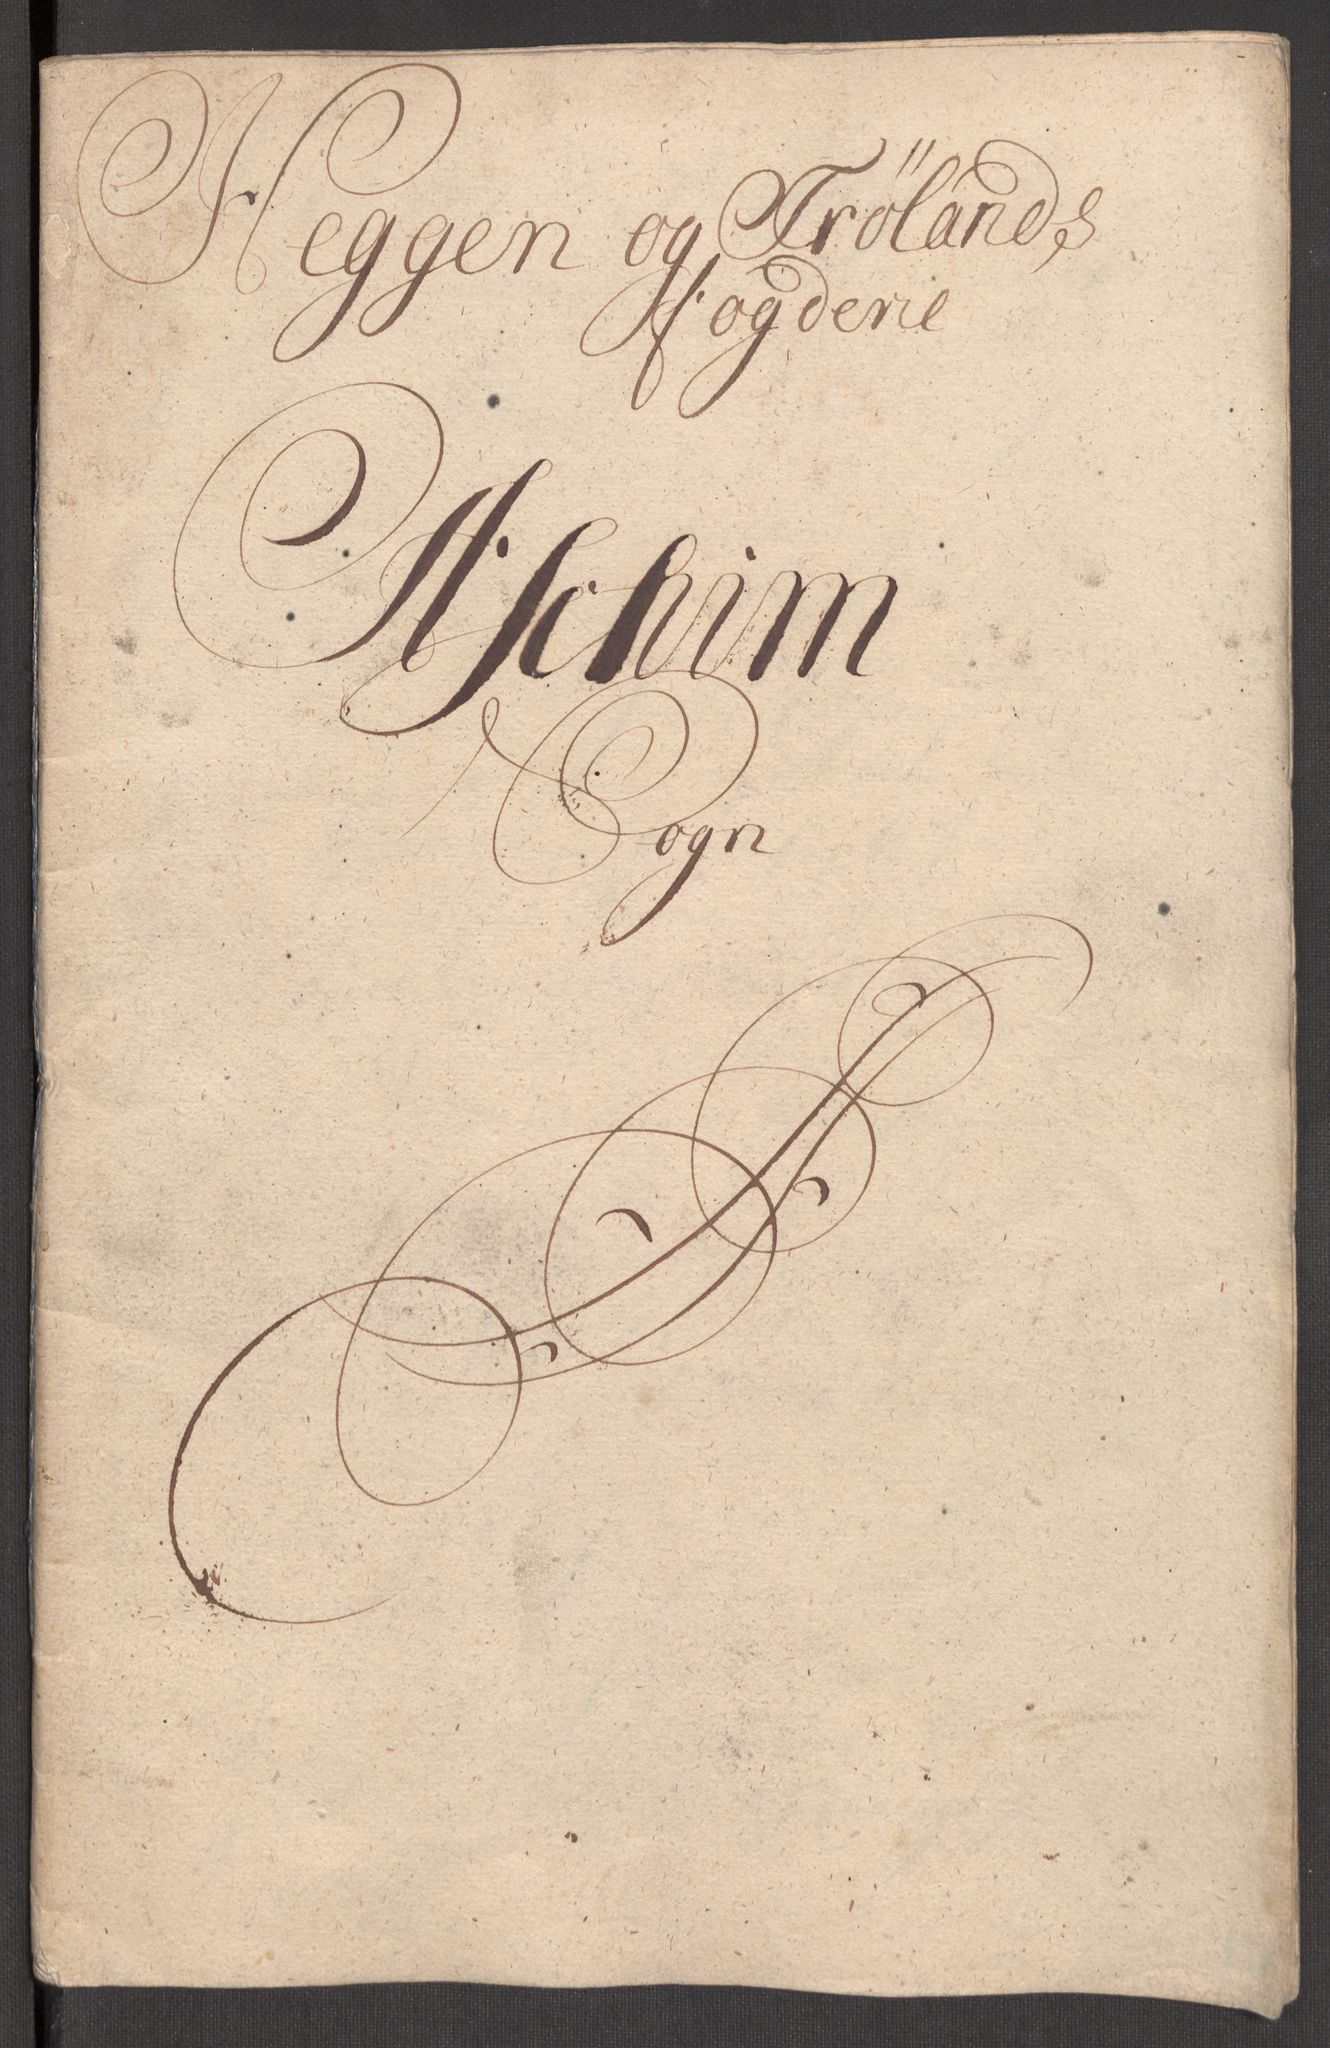 Heggen og Frölands
fogderie
Aschim
Sogn